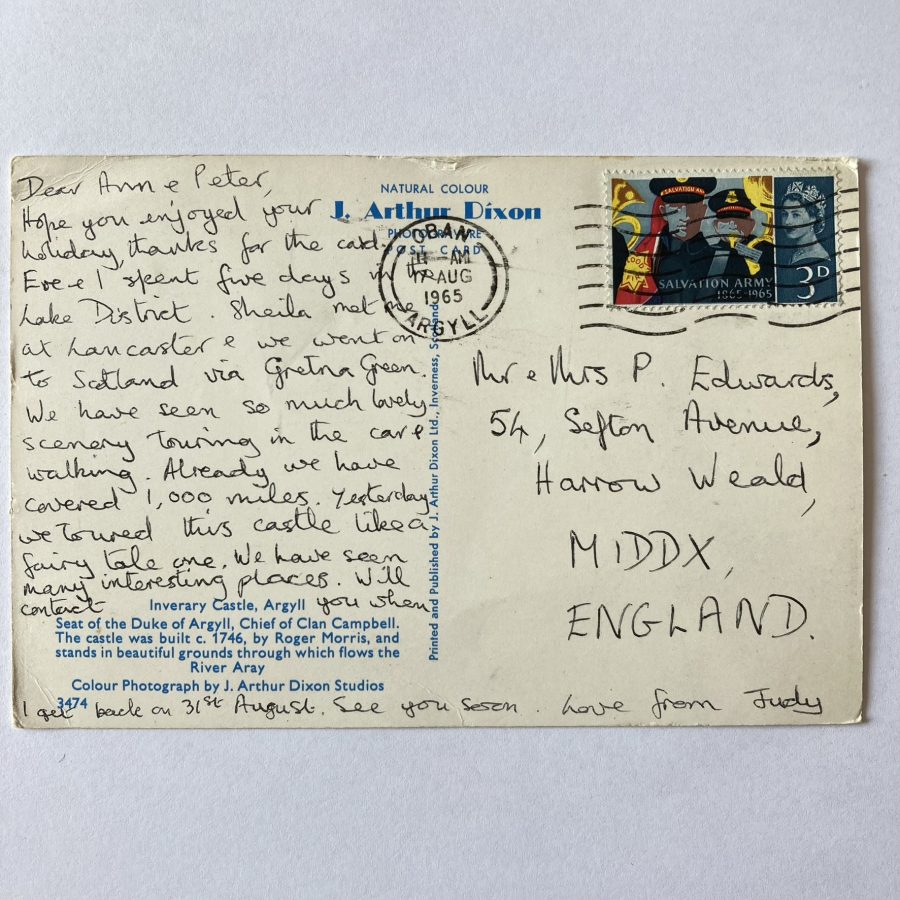 Dear Ann e Peter,
Hope you enjoyed your
holiday, thanks for the card.
Eve e I spent five days in the
Lake District. Sheila met me
at Lancaster e we went on
to Scotland via Gretna Green.
We have seen so much lovely
scenery touring in the car e
walking. Already we have
covered 1,000 miles. Yesterday
we toured this castle like a
fairy tale one. We have seen
many interesting places. Will
contact you when
I get back on 31st August. See you soon. Love from Judy
NATURAL COLOUR
J. Arthur Dixon
PHOTOGRAVURE
POST CARD
Inverary Castle, Argyll
Seat of the Duke of Argyll, Chief of Clan Campbell.
The castle was built c. 1746, by Roger Morris, and
stands in beautiful grounds through which flows the
River Aray
Colour Photograph by J. Arthur Dixon Studios
3474
Printed and Published by J. Arthur Dixon Ltd., Inverness, Scotland
OBAN
AM
17 AUG
1965
ARGYLL
SALVATION AR
BLOOD
FIRE
SALVATION ARMY
1865-1965
3D
Mr e Mrs P. Edwards,
54, Sefton Avenue,
Harrow Weald,
MIDDX,
ENGLAND.